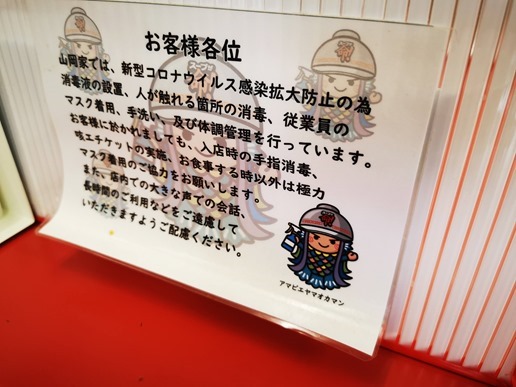 お客様各位
山岡家では、新型コロナウイルス感染拡大防止の為
消毒液の設置、人が触れる箇所の消毒、従業員の
マスク着用、手洗い、及び体調管理を行っています。
お客様に於かれましても、入店時の手指消毒、
咳エチケットの実施、お食事する時以外は極力
マスク着用のご協力をお願いします。
また、店内での大きな声での会話、
長時間のご利用などをご遠慮して
いただきますようご配慮ください。
アマビエヤマオカマン